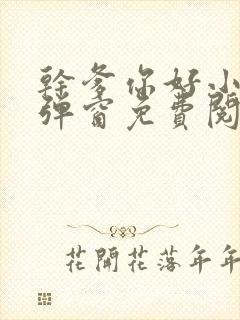 幹爹你好小
彈窗免費閱
花開花落年年